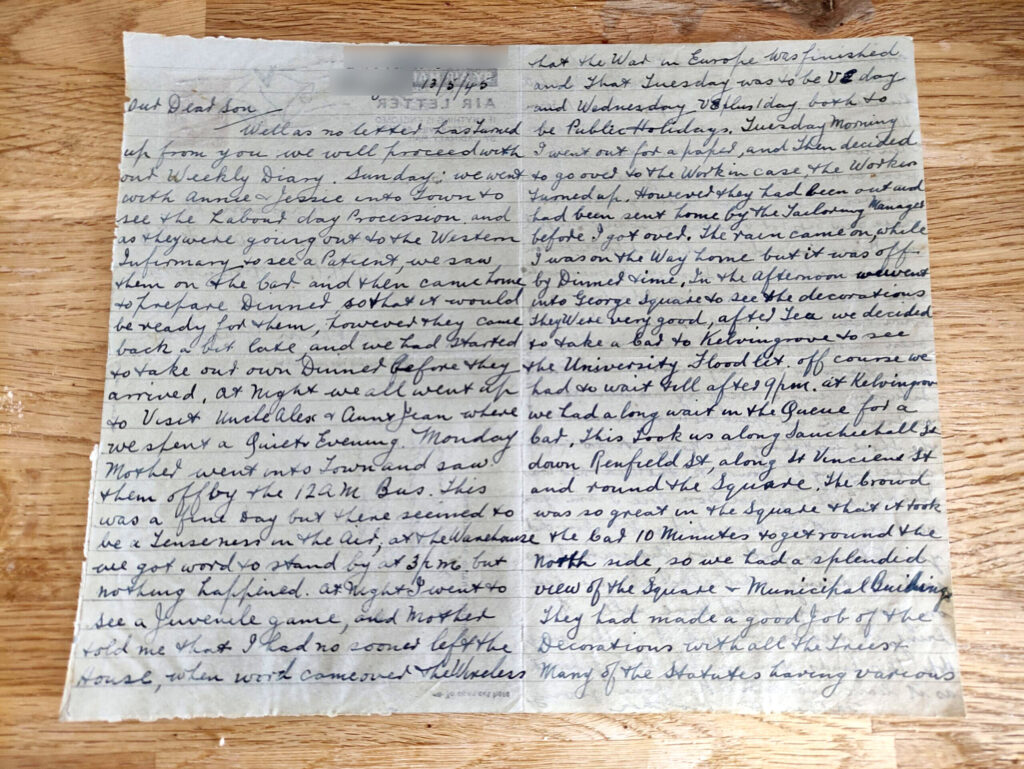 13/5/45
AIR LETTER
Our Dear Son
Well as no letter has turned
up from you we will proceed with
our Weekly Diary. Sunday; we went
with Annie & Jessie into Town to
see the Labour day Procession and
as they were going out to the Western
Infirmary to see a Patient, we saw
them on the Car and then came home
to prepare Dinner so that it would
be ready for them, however they came
back a bit late, and we had started
to take our own Dinner before they
arrived, at Night we all went up
to Visit Uncle Alex & Aunt Jean where
we spent a Quiet Evening. Monday
Mother went into Town and saw
them off by the 12 A.M. Bus. This
was a fine Day but there seemed to
be a Tenseness in the Air, at the Warehouse
we got word to stand by at 3 pm. but
nothing happened. at Night I went to
see a Juvenile game, and Mother
told me that I had no sooner left the
House, when word came over the Wireless
that the War in Europe was finished
and That Tuesday was to be VE day
and Wednesday VE plus 1 day both to
be Public Holidays. Tuesday Morning
I went out for a paper, and Then decided
to go over to the Work in case, the Workers
Turned up. However they had been out and
had been sent home by the Tailoring Manager
before I got over. The rain came on, while
I was on the Way home but it was off
by Dinner time. In the Afternoon we went
into George Square to see the decorations
They Were very good, after Tea we decided
to take a Car to Kelvingrove to see
the University Flood lit. off course we
had to wait till after 9 pm. at Kelvingrove
we had a long wait in the Queue for a
Car, This Took us along Sauchiehall St
down Renfield St, along St Vincient St
and round the Square. The Crowd
was so great in the Square that it took
the Car 10 Minutes to get round the
North side, so we had a splendid
view of the Square & Municipal Buildings
They had made a good Job of the
Decorations with all the Trees &
Many of the Statutes having various